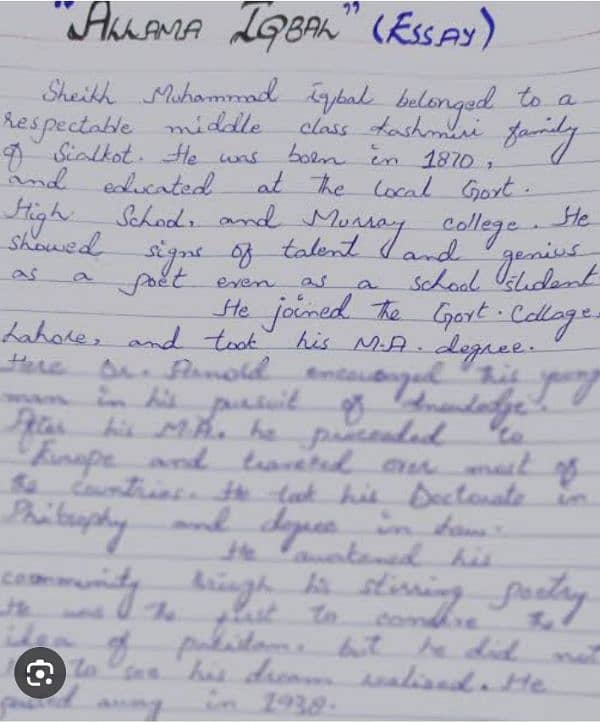 "ALLAMA IQBAL" (ESSAY)
Sheikh Muhammad Iqbal belonged to a
respectable middle class Kashmiri family
of Sialkot. He was born in 1870,
and educated at the local Govt.
High School, and Murray college. He
showed signs of talent and genius
as a poet even as a school student
He joined the Govt. Collage,
Lahore, and took his M.A. degree.
Here Dr. Arnold encouraged this young
man in his pursuit of knowledge.
After his M.A. he proceeded to
Europe and traveled over most of
the countries. He took his Doctorate in
Philosophy and degree in Law.
He awakened his
community through his stirring poetry
He was the first to the
idea of pakistan. but he did not
to see his dream realised. He
passed away in 1938.